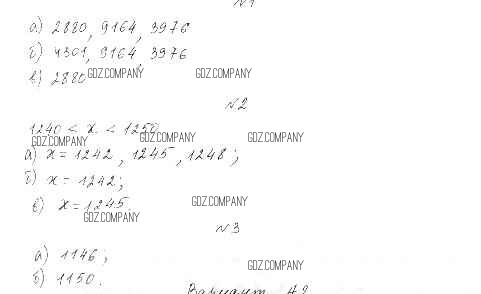 №1
а) 2880, 9164, 3976
б) 4301, 9164 3976
в) 2880
GDZ.COMPANY GDZ.COMPANY
№2
1240 < x < 1250
GDZ.COMPANY GDZ.COMPANY GDZ.COMPANY
а) x = 1242, 1245, 1248;
б) x = 1242;
в) x = 1245.
GDZ.COMPANY GDZ.COMPANY
№3
а) 1146;
б) 1150.
GDZ.COMPANY
Вариант А2